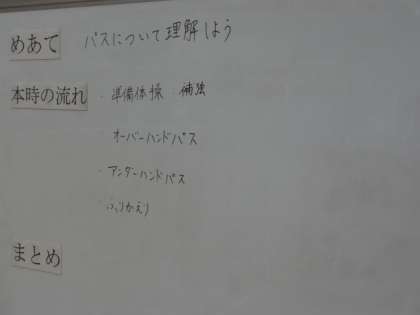 めあて パスについて理解しよう
本時の流れ ・準備体操 補強
オーバーハンドパス
・アンダーハンドパス
・ふりかえり
まとめ